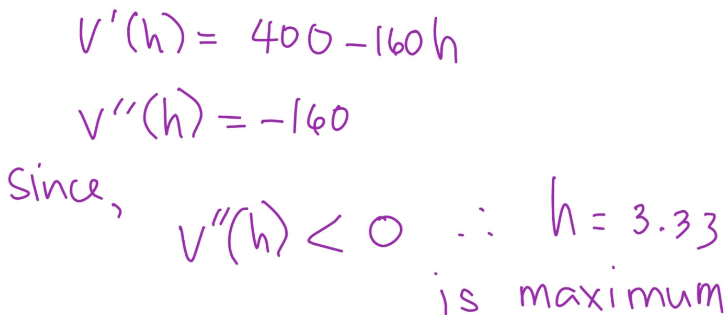 V'(h) = 400 - 160h
V''(h) = -160
Since,
V''(h) < 0 ∴ h = 3.33
is maximum